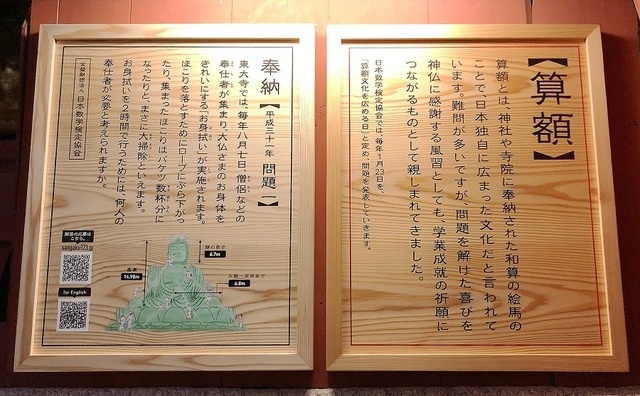 【算額】
算額とは、神社や寺院に奉納された和算の絵馬の
ことで、日本独自に広まった文化だと言われて
います。難問が多いですが、問題を解けた喜びを
神仏に感謝する風習としても、学業成就の祈願に
つながるものとして親しまれてきました。
日本数学検定協会では、毎年1月23日を、
「算額文化を広める日」と定め、問題を発表していきます。
奉納【平成三十一年 問題一】
東大寺では、毎年八月七日僧侶などの
奉仕者が集まり、大仏さまのお身体を
きれいにする「お身拭い」が実施されます。
ほこりを落とすためにロープにぶら下がっ
たり、集まったほこりはバケツ数杯分に
なったりと、まさに大掃除といえます。
お身拭いを2時間で行うためには、何人の
奉仕者が必要と考えられますか。
公益財団法人 日本数学検定協会
解答の応募は
こちら。
sangaku123.jp
for English
頭の長さ
6.7m
座高
14.98m
6.8m